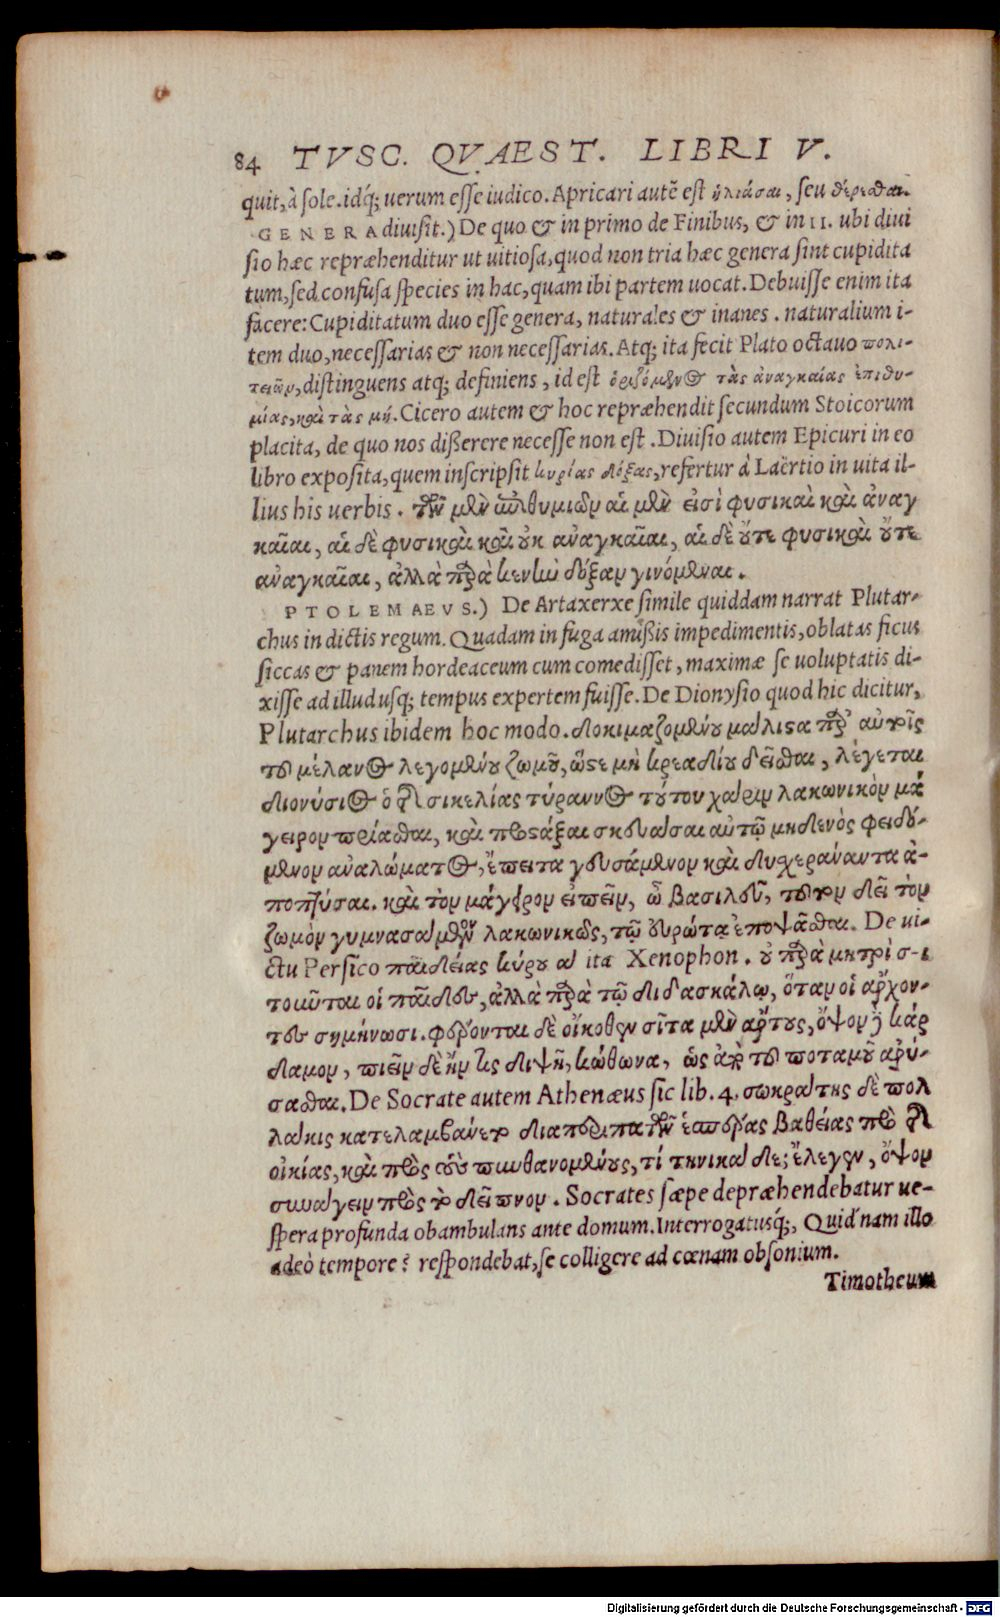 84 TVSC. QVAEST. LIBRI V.
quit, à sole. idq́; uerum esse iudico. Apricari autẽ est ἡλιάσαι, seu θέρεσθαι.
GENERA diuisit.) De quo & in primo de Finibus, & in II. ubi diui
sio hæc repræhenditur ut uitiosa, quod non tria hæc genera sint cupidita
tum, sed confusa species in hac, quam ibi partem uocat. Debuisse enim ita
facere: Cupiditatum duo esse genera, naturales & inanes. naturalium i-
tem duo, necessarias & non necessarias. Atq; ita fecit Plato octauo πολι-
τειῶν, distinguens atq; definiens, id est ὁριζόμενος τὰς ἀναγκαίας ἐπιθυ-
μίας, καὶ τὰς μή. Cicero autem & hoc repræhendit secundum Stoicorum
placita, de quo nos dißerere necesse non est. Diuisio autem Epicuri in eo
libro exposita, quem inscripsit κυρίας δόξας, refertur à Laërtio in uita il-
lius his uerbis. τῶν μὲν ἐπιθυμιῶν αἱ μὲν εἰσὶ φυσικαὶ καὶ ἀναγ
καῖαι, αἱ δὲ φυσικαὶ καὶ οὐκ ἀναγκαῖαι, αἱ δὲ οὔτε φυσικαὶ οὔτε
ἀναγκαῖαι, ἀλλὰ παρὰ κενὴν δόξαν γινόμεναι.
PTOLEMAEVS.) De Artaxerxe simile quiddam narrat Plutar-
chus in dictis regum. Quadam in fuga amißis impedimentis, oblatas ficus
siccas & panem hordeaceum cum comedisset, maximæ se uoluptatis di-
xisse ad illud usq; tempus expertem fuisse. De Dionysio quod hic dicitur,
Plutarchus ibidem hoc modo. δοκιμαζομένου μάλιστα παρ' αὐτοῖς
τοῦ μέλανος λεγομένου ζωμοῦ, ὥστε μὴ κρεαδίου δεῖσθαι, λέγεται
διονύσιος ὁ τῆς σικελίας τύραννος τούτου χάριν λακωνικὸν μά
γειρον πρίασθαι, καὶ προστάξαι σκευάσαι αὐτῷ μηδενὸς φειδό-
μενον ἀναλώματος, ἔπειτα γευσάμενον καὶ δυσχεράναντα ἀ-
ποπτύσαι. καὶ τὸν μάγειρον εἰπεῖν, ὦ βασιλεῦ, τοῦτον δεῖ τὸν
ζωμὸν γυμνασάμενον λακωνικῶς, τῷ εὐρώτᾳ ἐποψᾶσθαι. De ui-
ctu Persico παιδείας κύρου α ita Xenophon. οὐ παρὰ μητρὶ σι-
τοῦνται οἱ παῖδες, ἀλλὰ παρὰ τῷ διδασκάλῳ, ὅταν οἱ ἄρχον-
τες σημήνωσι. φέρονται δὲ οἴκοθεν σῖτα μὲν ἄρτους, ὄψον δὲ κάρ
δαμον, πιεῖν δὲ ἤν τις διψῇ, κώθωνα, ὡς ἀπὸ τοῦ ποταμοῦ ἀρύ-
σασθαι. De Socrate autem Athenæus sic lib. 4. σωκράτης δὲ πολ
λάκις κατελαμβάνετο διαπεριπατῶν ἑσπέρας βαθείας πρὸ τῆς
οἰκίας, καὶ πρὸς τοὺς πυνθανομένους, τί τηνικάδε; ἔλεγεν, ὄψον
συνάγειν πρὸς τὸ δεῖπνον. Socrates sæpe depræhendebatur ue-
spera profunda obambulans ante domum. Interrogatusq́;, Quid nam illo
adeò tempore? respondebat, se colligere ad cœnam obsonium.
Timotheum
Digitalisierung gefördert durch die Deutsche Forschungsgemeinschaft - DFG